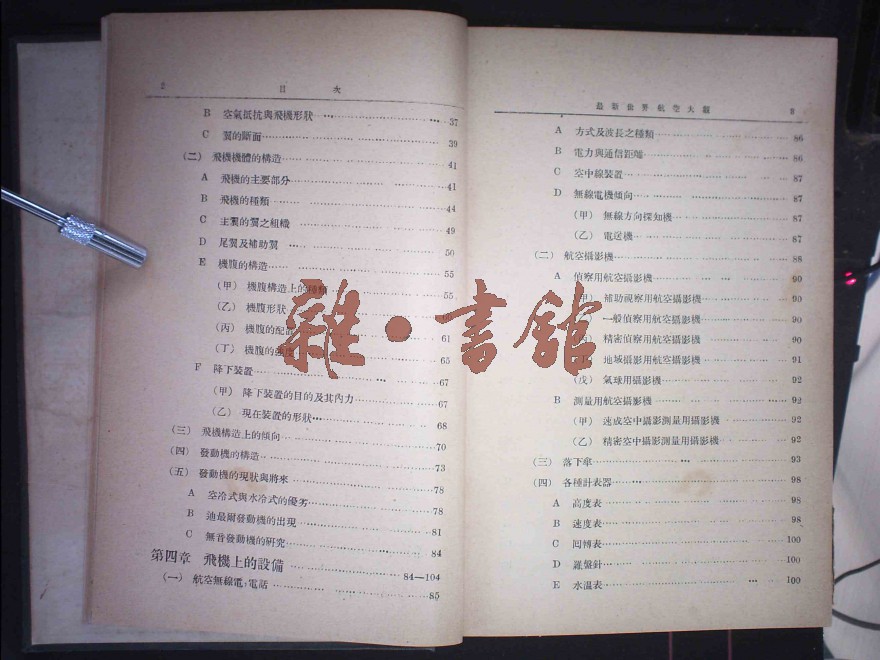 2 目次
B 空氣抵抗與飛機形狀 37
C 翼的斷面 39
(二) 飛機機體的構造 41
A 飛機的主要部分 41
B 飛機的種類 44
C 主翼的翼之組織 49
D 尾翼及補助翼 50
E 機腹的構造 55
(甲) 機腹構造上的種類 55
(乙) 機腹形狀
(丙) 機腹的配置 61
(丁) 機腹的強度 65
F 降下装置 67
(甲) 降下裝置的目的及其內力 67
(乙) 現在裝置的形狀 68
(三) 飛機構造上的傾向 70
(四) 發動機的構造 73
(五) 發動機的現狀與將來 78
A 空冷式與水冷式的優劣 78
B 迪最爾發動機的出現 81
C 無音發動機的研究 84
第四章 飛機上的設備 84—104
(一) 航空無線電,電話 85
最新世界航空大觀
A 方式及波長之種類 86
B 電力與通信距離 86
C 空中線裝置 87
D 無線電機傾向 87
(甲) 無線方向探知機 87
(乙) 電送機 87
(二) 航空攝影機 88
A 偵察用航空攝影機 90
(甲) 補助視察用航空攝影機 90
一般偵察用航空攝影機 90
精密偵察用航空攝影機 90
地域攝影用航空攝影機 91
(戊) 氣球用攝影機 92
B 測量用航空攝影機 92
(甲) 速成空中攝影測量用攝影機 92
(乙) 精密空中攝影測量用攝影機 92
(三) 落下傘 93
(四) 各種計表器 98
A 高度表 98
B 速度表 98
C 囘轉表 100
D 羅盤針 100
E 水溫表 100
雜·書館